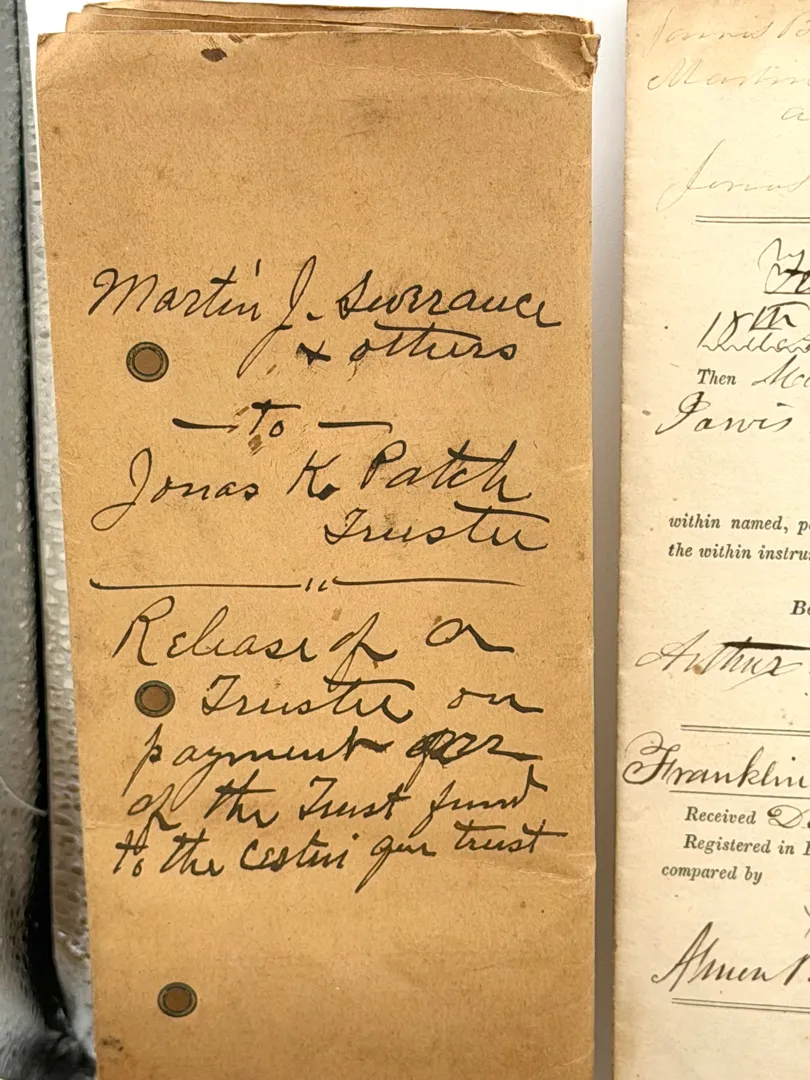 Martin J. Severance
& others
— to —
Jonas K. Patch
Trustee
Release of a
Trustee on
payment over
of the Trust fund
to the Cestui que trust
Jarvis
Martin
a
Jonas
Then
Jarvis
within named,
the within
Arthur
Franklin
Received
Registered in
compared by